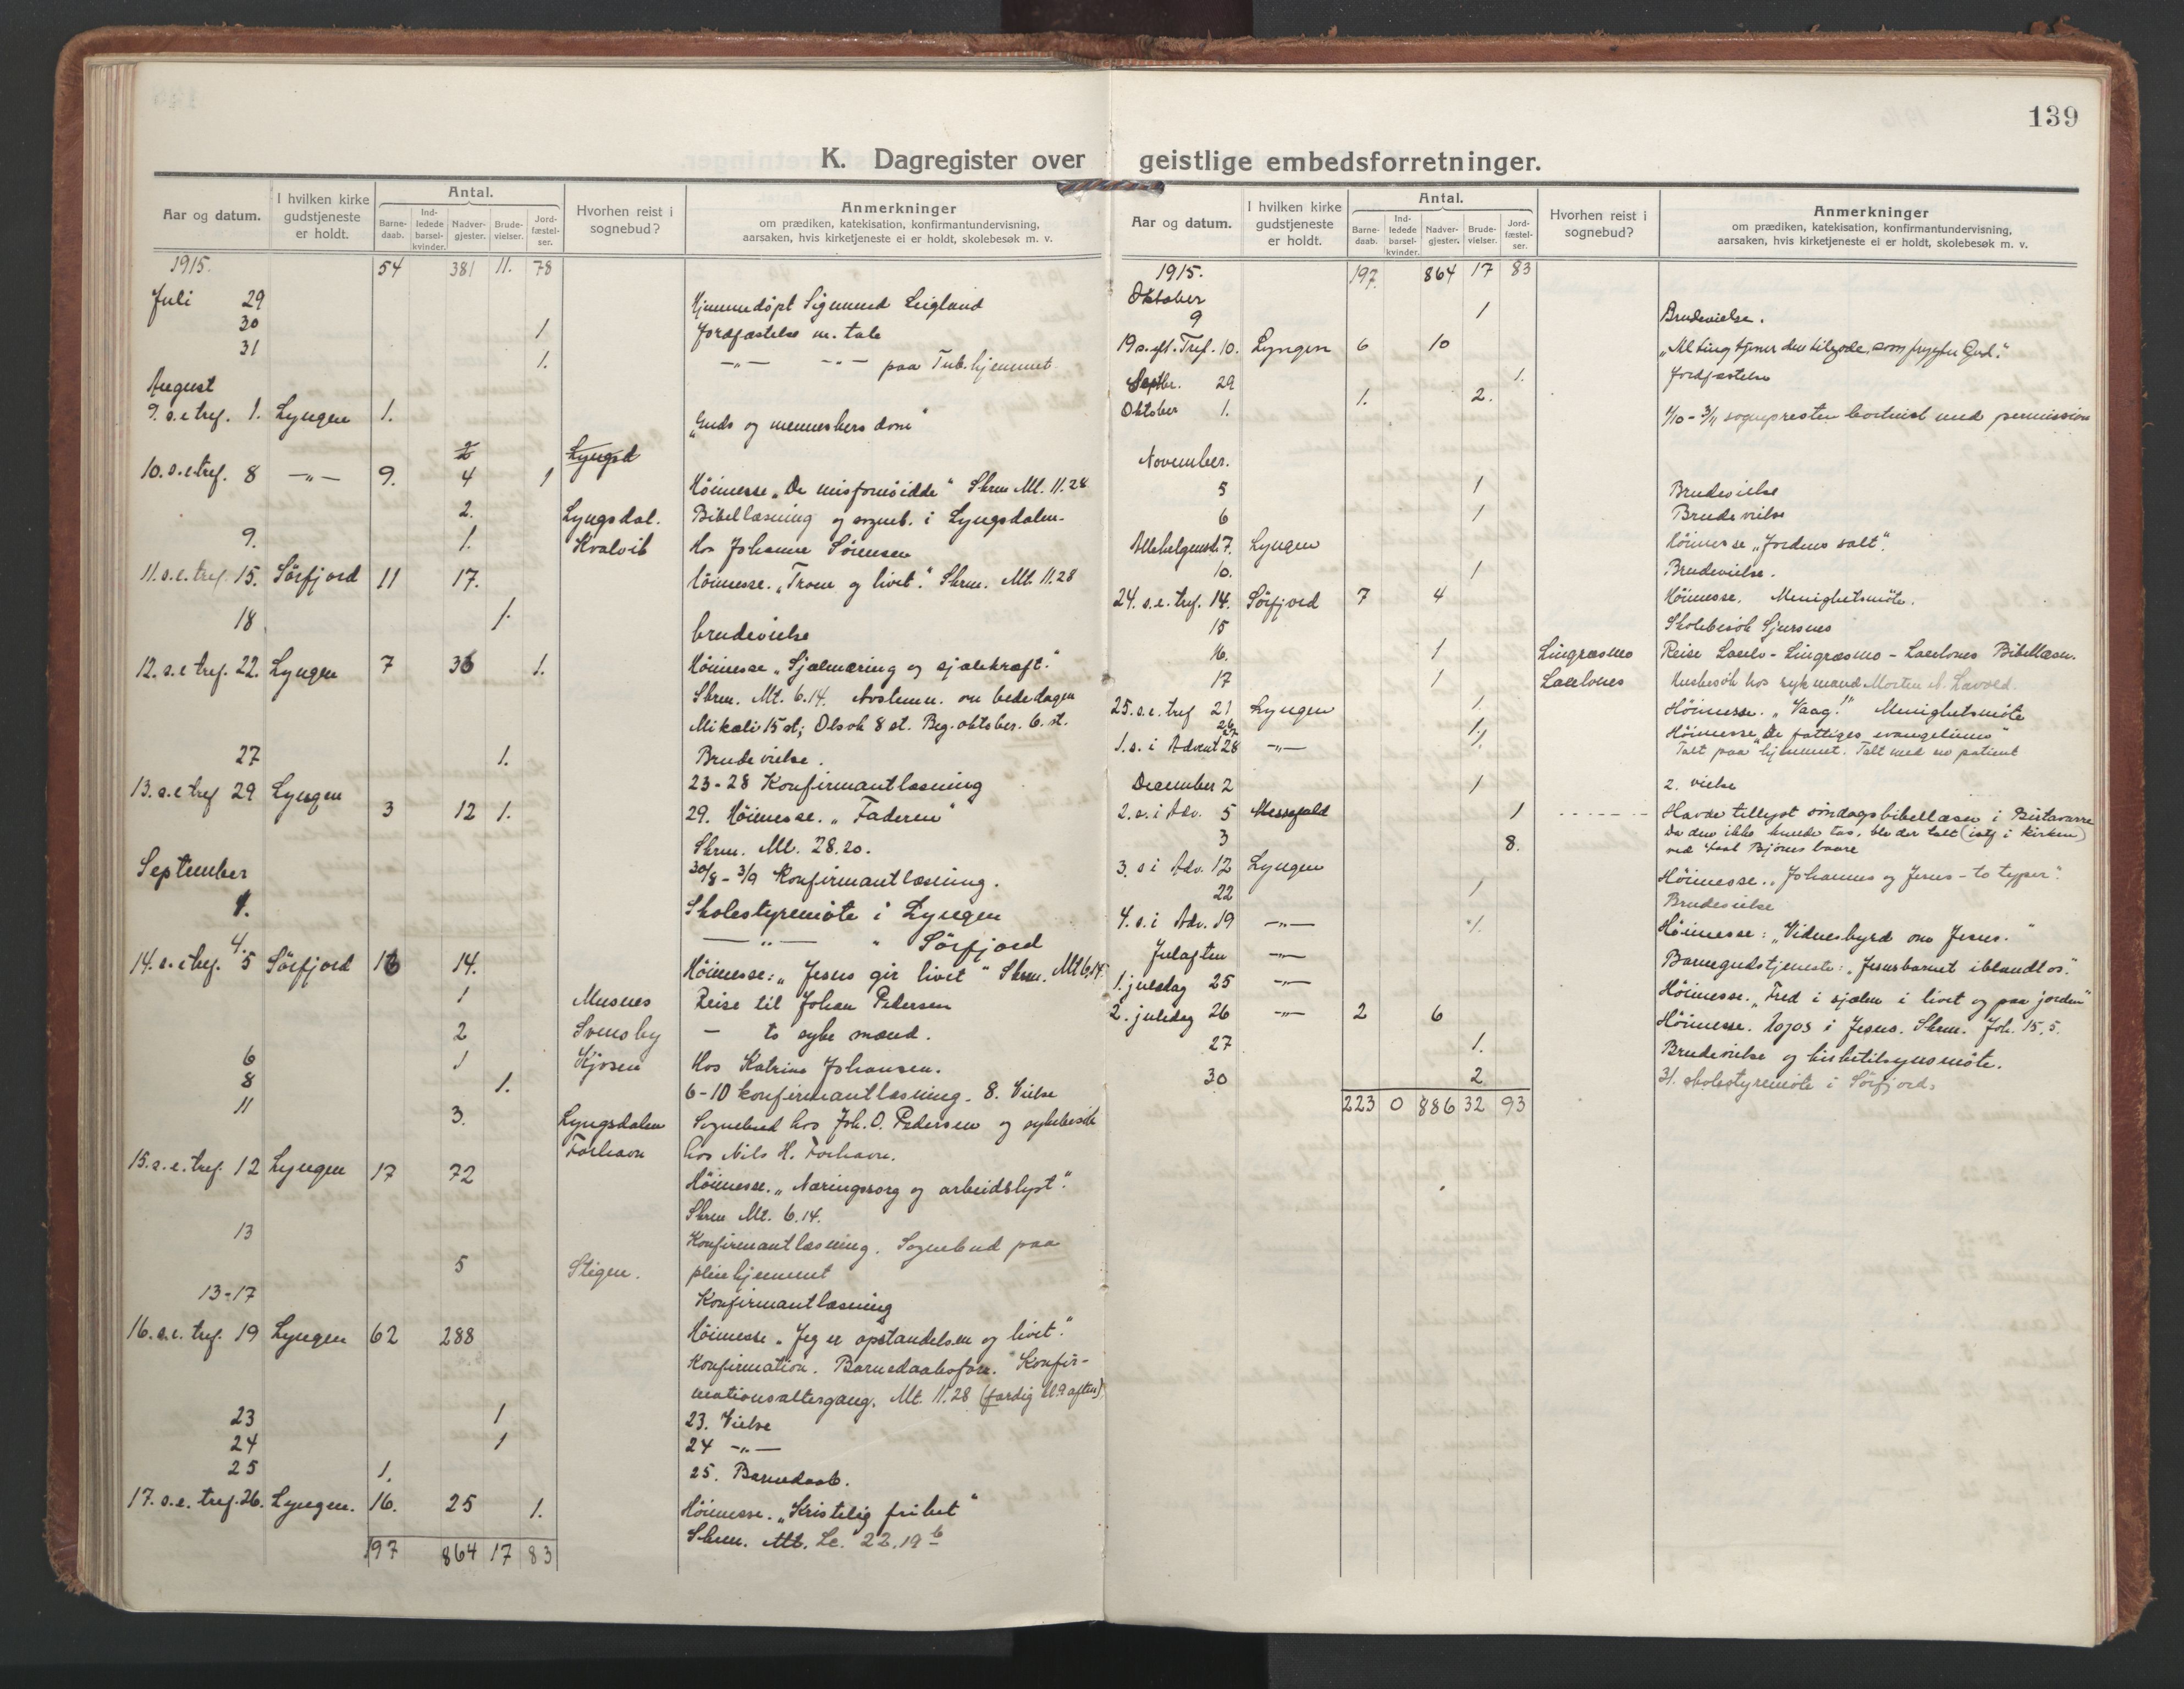 139
K. Dagregister over geistlige embedsforretninger.
Aar og datum.
I hvilken kirke gudstjeneste er holdt.
Antal.
Barnedaab.
Indledede barselkvinder.
Nadvergjester.
Brudevielser.
Jordfæstelser.
Hvorhen reist i sognebud?
Anmerkninger
om prædiken, katekisation, konfirmantundervisning,
aarsaken, hvis kirketjeneste ei er holdt, skolebesøk m. v.
1915. 54 381 11. 78
Juli 29 Hjemmedöpt Sigmund Leigland
30 1 Jordfæstelse m. tale
31 1. -"- -"- paa Tub.hjemmet
August
9. s.e tref. 1. Lyngen 1. "Guds og menneskers dom"
2 Lyngsd
10. s.e tref. 8 -"- 9. 4 1 Höimesse "De misfornöidde" Skrm Mt. 11.28
2. Lyngsdal. Bibellæsning og sogneb. i Lyngsdalen.
9. 1. Kvalvik Hos Johanne Sörensen
11. s.e. tref. 15. Sörfjord 11 17. Höimesse. "Troen og livet." Skrm. Mt. 11.28
18 1. brudevielse
12. s.e tref. 22. Lyngen 7 36 1. Höimesse "Sjælenæring og sjælekraft."
Skrm. Mt. 6.14. Avstemn. om bededagen
Mikali 15 st; Olsok 8 st. Beg. oktober. 6. st.
27 1. Brudevielse.
23-28 Konfirmantlæsning
13. s.e tref 29 Lyngen 3 12 1. 29. Höimesse. "Faderen"
Skrm. Mt. 28.20.
September 30/8 - 3/9 Konfirmantlæsning.
1. Skolestyremöte i Lyngen
4. -"- " Sörfjord
14. s.e tref. 5 Sörfjord 16 14. Höimesse: "Jesus gir livet" Skrm. Mt 6,14.
1 Musnes Reise til Johan Pedersen
2 Svensby - to syke mænd.
6 1 Kjosen Hos Katrine Johansen.
8 1. 6-10 konfirmantlæsning. 8. Vielse
11 3. Lyngsdalen Sognebud hos Joh. O. Pedersen og sykebesök
hos Nils H.
15. s.e. tref. 12 Lyngen 17 72 Höimesse. "Næringssorg og arbeidslyst."
Skrm Mt. 6.14.
13 Konfirmantlæsning. Sognebud paa
5 Stigen. pleiehjemmet
13-17 Konfirmantlæsning
16. s.e. tref. 19 Lyngen 62 288 Höimesse "Jeg er opstandelsen og livet."
Konfirmation. Barnedaabsforr. Konfir-
mationsaltergang. Mt. 11.28 (færdig kl. 9 aften)
23 1 23. Vielse
24 1 24 -"-
25 1. 25. Barnedaab.
17. s.e. tref. 26. Lyngen. 16. 25 1. Höimesse. "Kristelig frihet"
Skrm. Mt. Lc. 22.19 b
197 864 17 83
Aar og datum.
I hvilken kirke gudstjeneste er holdt.
Antal.
Barnedaab.
Indledede barselkvinder.
Nadvergjester.
Brudevielser.
Jordfæstelser.
Hvorhen reist i sognebud?
Anmerkninger
om prædiken, katekisation, konfirmantundervisning,
aarsaken, hvis kirketjeneste ei er holdt, skolebesøk m. v.
1915. 197. 864 17 83
Oktober
9 1 Brudevielse.
19 s. eft. Tref. 10. Lyngen 6 10 "Alting tjener den tilgode, som frygter Gud."
Septbr. 29 1. Jordfæstelse
Oktober 1. 1. 2. 1/10 - 3/11 sognepresten bortreist med permission
November.
5 1 Brudevielse
6 1 Brudevielse
Allehelgensd. 7. Lyngen Höimesse "Jordens salt".
10. 1 Brudevielse.
24. s.e. tref. 14. Sörfjord 7 4 Höimesse. Menighetsmöte.
15 Skolebesök Sjursnes
16. 1 Lingræsmo Reise - Lingræsmo - Bibellæsn.
17 1 Husbesök hos syk mand Morten N.
25. s.e. tref 21 Lyngen 1. Höimesse. "Vaag!" Menighetsmöte
26 1.
1. s. i Advent 28 -"- 1. Höimesse "De fattiges evangelium"
Talt paa hjemmet. Talt med en patient
December 2 1 2. vielse
2. s. i Adv. 5 Messefald 1 Havde tillyst söndagsbibellæsn i Birtavarre
3 8. Da den ikke kunde tas, ble der talt (istf. i kirken)
ved Bjönes baare
3. s i Adv. 12 Lyngen Höimesse. "Johannes og Jesus - to typer".
22 1 Brudevielse
4. s. i Adv. 19 -"- 1. Höimesse: "Vidnesbyrd om Jesus."
Julaften -"- Barnegudstjeneste: "Jesusbarnet iblandt os."
1. juledag 25 -"- Höimesse. "Fred i sjælen i livet og paa jorden"
2. juledag 26 -"- 2 6 Höimesse. i Jesus. Skrm. Joh. 15,5.
27 1. Brudevielse og kirketilsynsmöte.
30 2 31. skolestyremöte i Sörfjord.
223 0 886 32 93